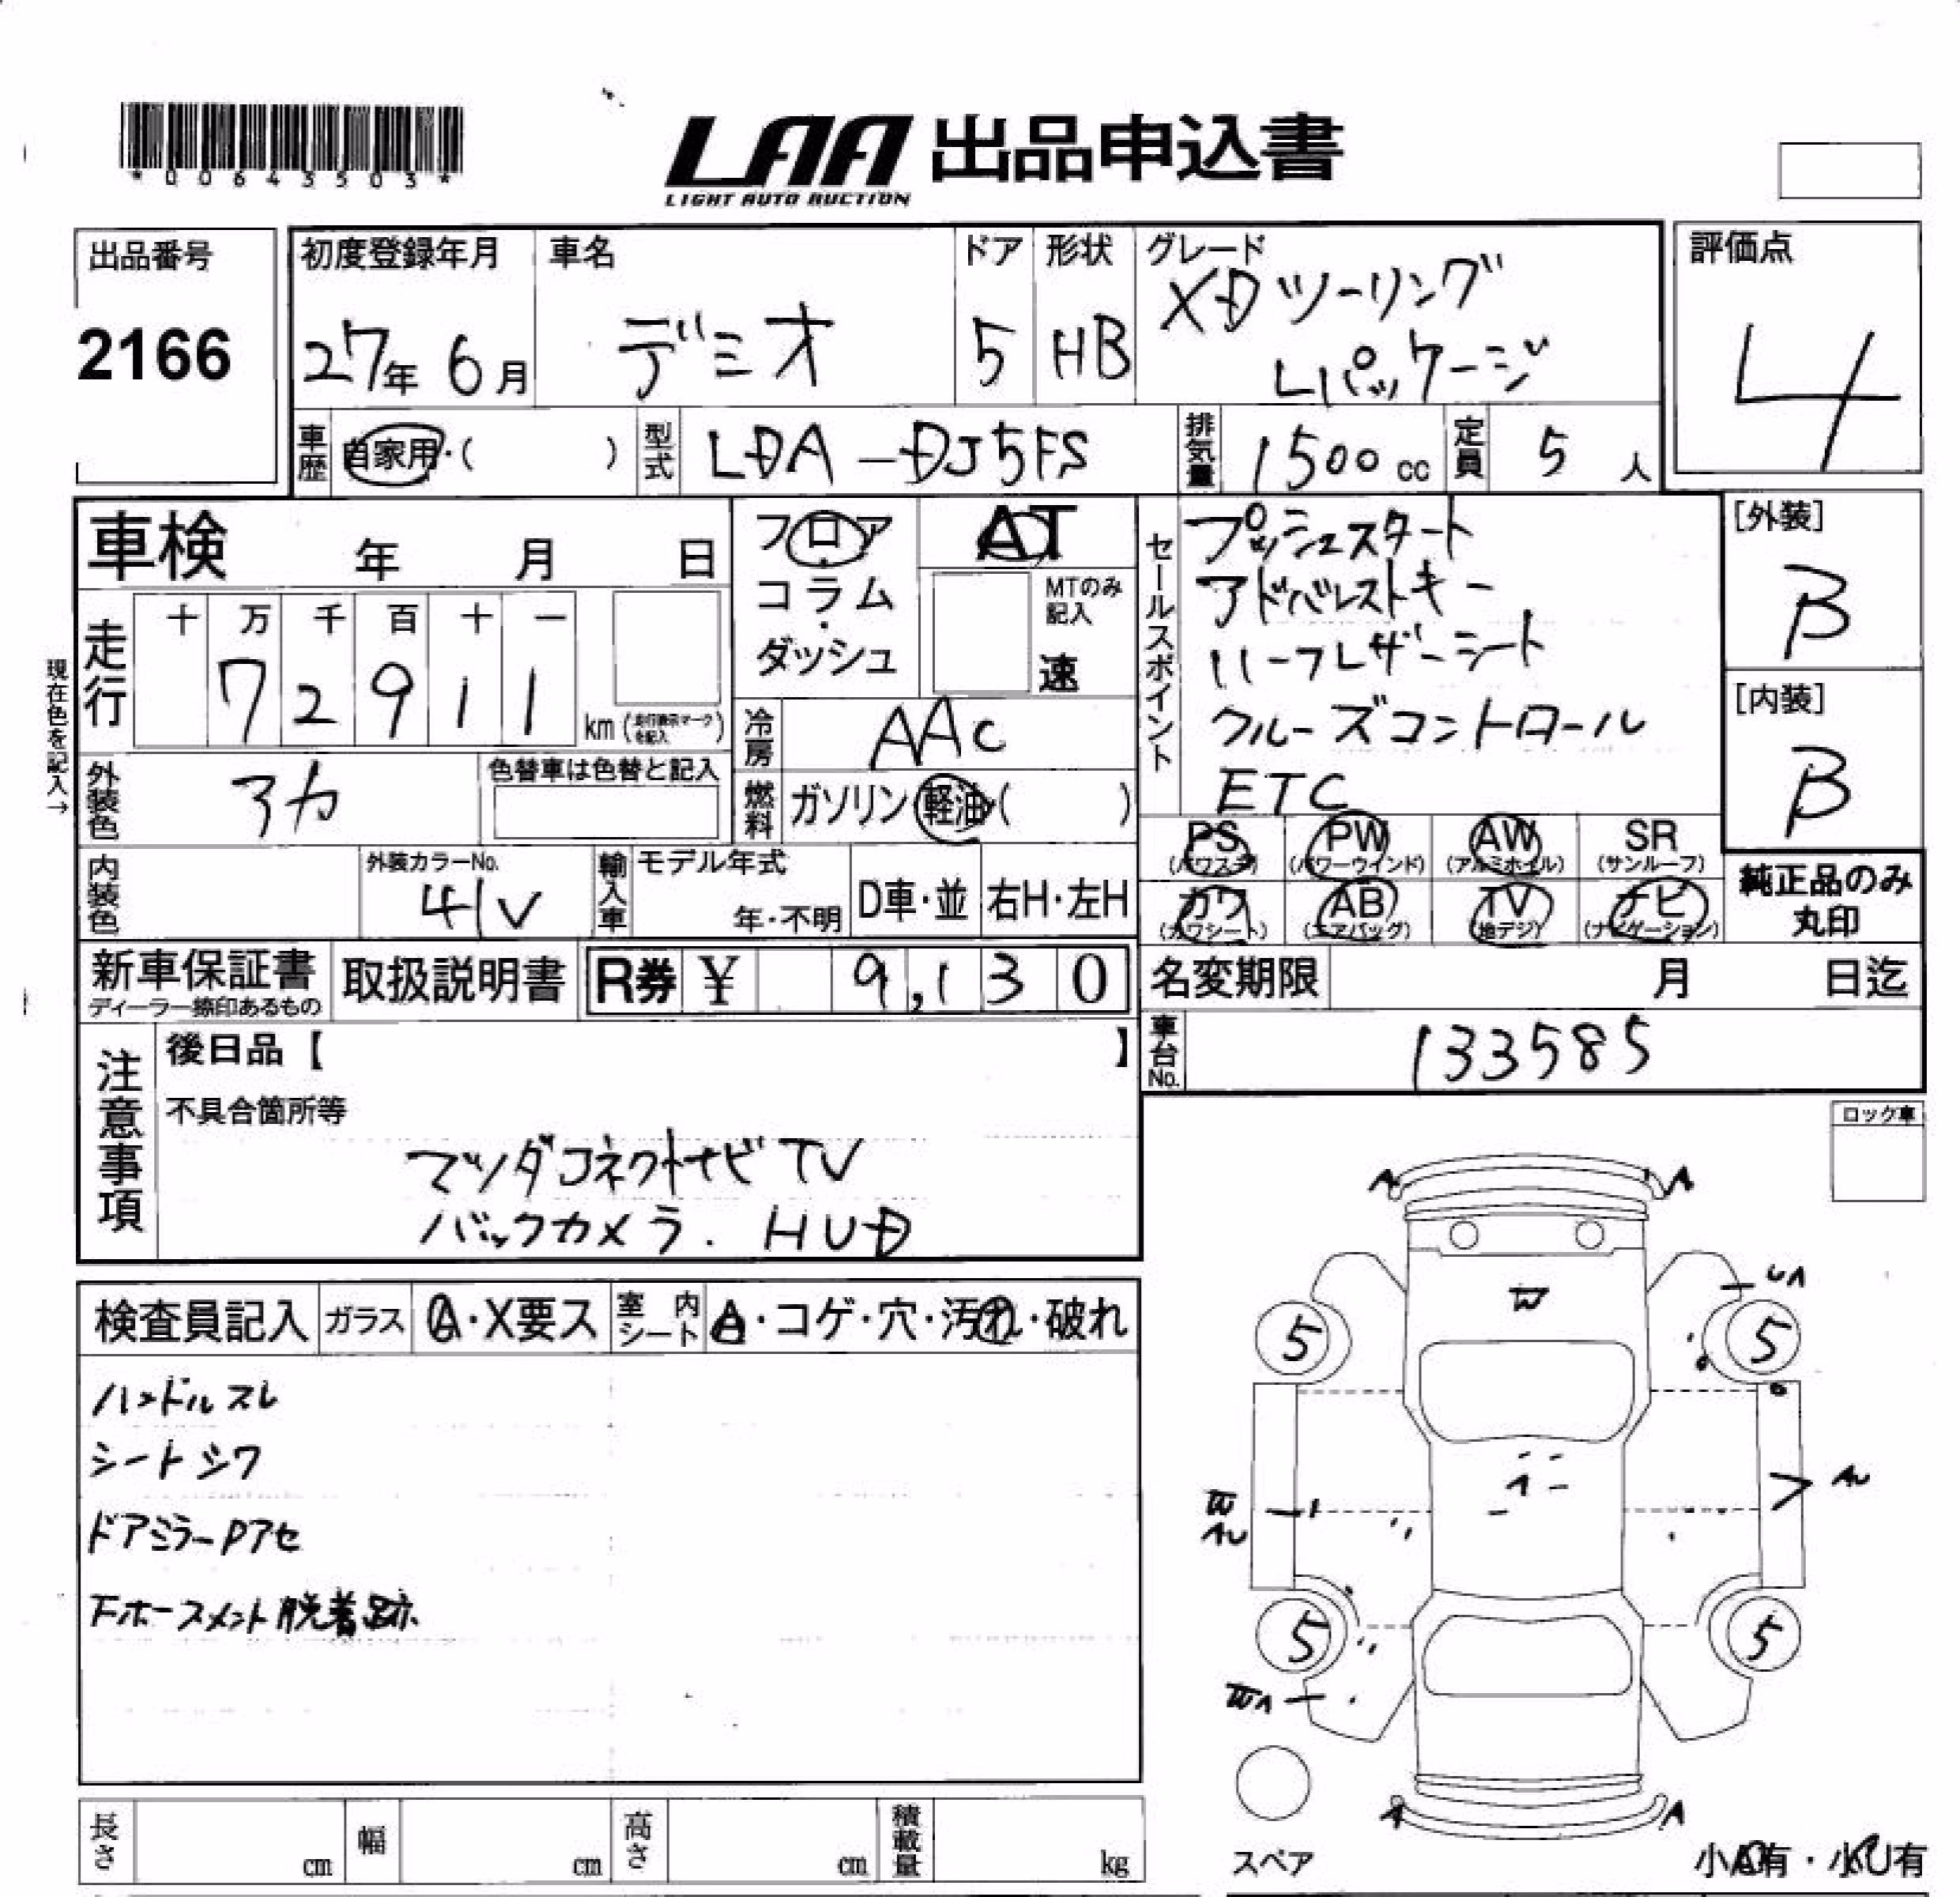 *00643503*
LAA 出品申込書
LIGHT AUTO AUCTION
出品番号
2166
初度登録年月
27年 6月
車名
デミオ
ドア
5
形状
HB
グレード
XDツーリング
Lパッケージ
評価点
4
車歴
自家用・( )
型式
LDA-DJ5FS
排気量
1500 cc
定員
5 人
車検 年 月 日
現在色を記入→
走行
十 万 千 百 十 一
7 2 9 1 1
km (走行換示マークを記入)
フロア
・
コラム
・
ダッシュ
AT
MTのみ
記入
速
冷房
AAC
燃料
ガソリン・軽油・( )
セールスポイント
プッシュスタート
アドバレストキー
ハーフレザーシート
クルーズコントロール
ETC
[外装]
B
[内装]
B
外装色
アカ
色替車は色替と記入
内装色
外装カラーNo.
41V
輸入車
モデル年式
年・不明
D車・並
右H・左H
PS
(パワステ)
PW
(パワーウインド)
AW
(アルミホイル)
SR
(サンルーフ)
カワ
(カワシート)
AB
(エアバッグ)
TV
(地デジ)
ナビ
(ナビゲーション)
純正品のみ
丸印
新車保証書
ディーラー捺印あるもの
取扱説明書
R券 ¥ 9,130
名変期限 月 日迄
車台No.
133585
注意事項
後日品【 】
不具合箇所等
マツダコネクトナビTV
バックカメラ. HUD
ロック車
検査員記入
ガラス
A・X要ス
室内シート
A・コゲ・穴・汚れ・破れ
ハンドルスレ
シートシワ
ドアミラーPアセ
Fホースメント脱着跡
A A
W
UA
5 5
A
AU
W
AU
5 5
WA
A A
スペア
小A有・小U有
長さ cm
幅 cm
高さ cm
積載量 kg